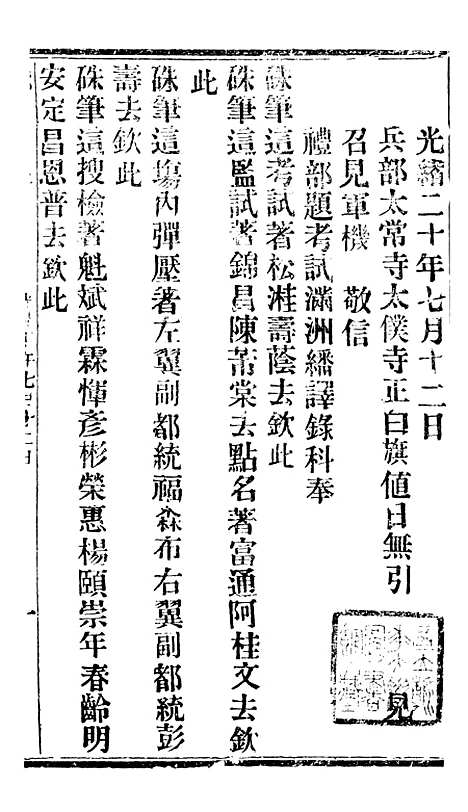 光緒二十年七月十二日
兵部太常寺太僕寺正白旗值日無引見
召見軍機　敬信
禮部題考試滿洲繙譯錄科奉
硃筆這考試著松溎壽蔭去欽此
硃筆這監試著錦昌陳芾棠去點名著富通阿桂文去欽
此
硃筆這塲內彈壓著左翼副都統福森布右翼副都統彭
壽去欽此
硃筆這搜檢著魁斌祥霖惲彥彬榮惠楊頤崇年春齡明
安定昌恩普去欽此
一